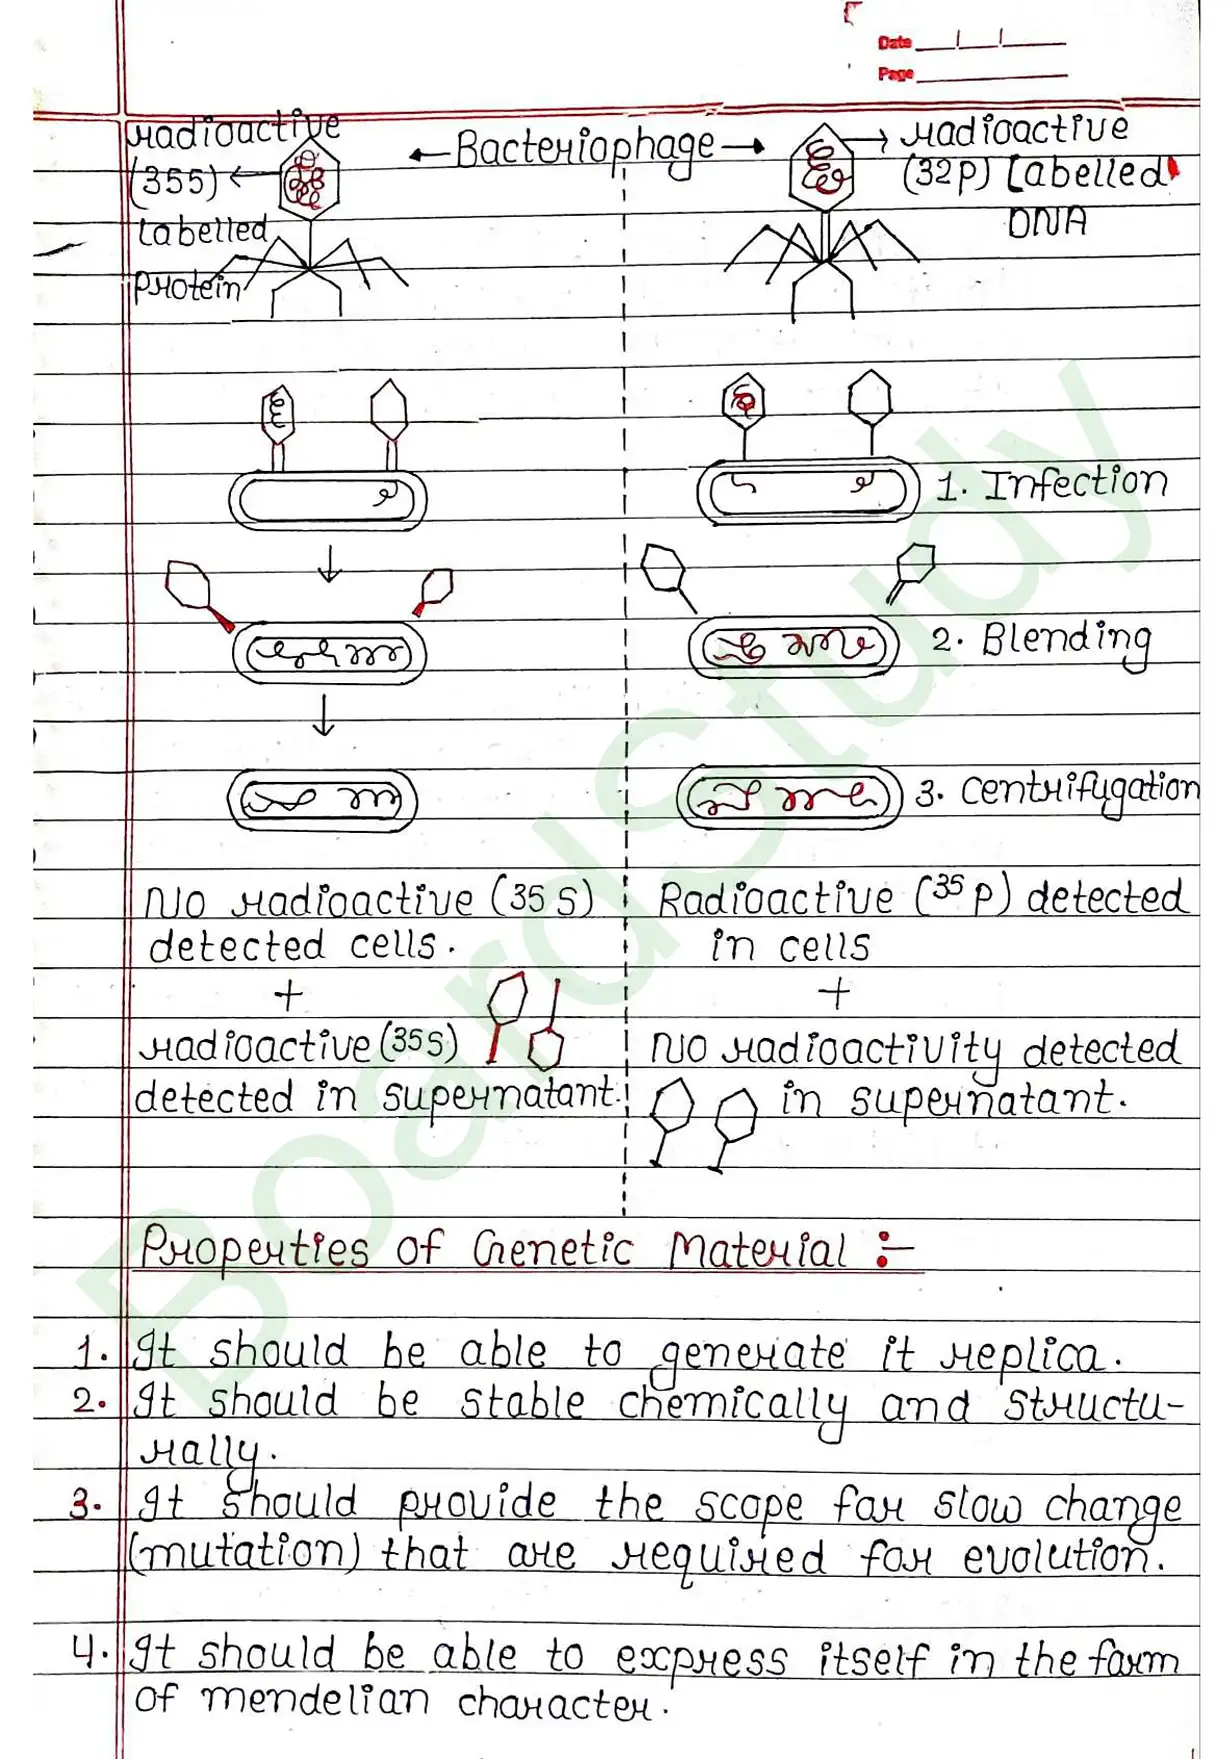 Date
Page
radioactive
(35s)
Labelled
protein
Bacteriophage
radioactive
(32P) Labelled
DNA
1. Infection
2. Blending
3. Centrifugation
No radioactive (35 s)
detected cells.
+
radioactive (35s)
detected in supernatant.
Radioactive (³⁵ P) detected
in cells
+
No radioactivity detected
in supernatant.
Properties of Genetic Material :-
1. It should be able to generate it replica.
2. It should be stable chemically and structu-
rally.
3. It should provide the scope for slow change
(mutation) that are required for evolution.
4. It should be able to express itself in the form
of mendelian character.
BoardStudy